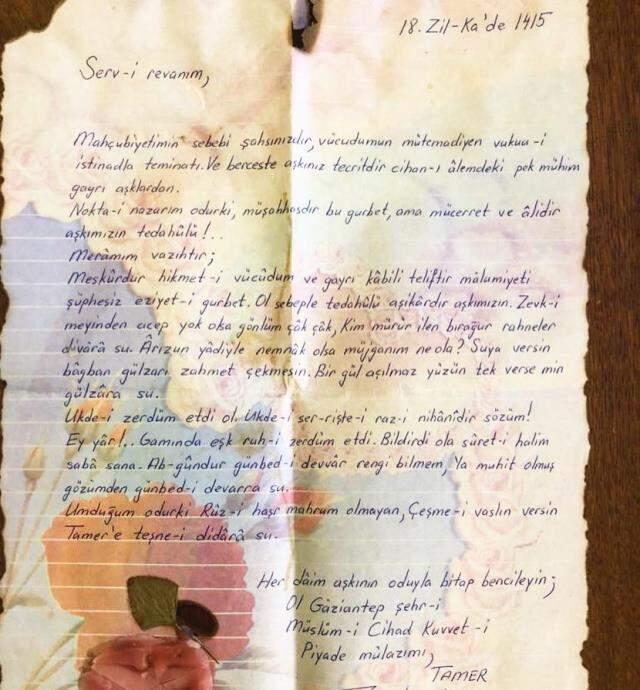 18. Zil-Ka'de 1415
Serv-i revanım,
Mahçubiyetimin sebebi şahsınızdır, vücudumun mütemadiyen vukuu-i
istinadla teminatı. Ve berceste aşkınız tecritdir cihan-ı âlemdeki pek mühim
gayrı aşklardan.
Nokta-i nazarım odurki, müşahhasdır bu gurbet, ama mücerret ve âlidir
aşkımızın tedahülü!..
Merâmım vazıhtır;
Meskûrdur hikmet-i vücûdum ve gayrı kâbili teliftir mâlumiyeti
şüphesiz eziyet-i gurbet. Ol sebeple tedahülü aşikârdır aşkımızın. Zevk-i
meyinden acep yok olsa gönlüm çâk çâk, Kim mürûr ilen bırağur rahneler
divâra su. Ârızun yâdiyle nemnâk olsa müjganım ne ola? Suya versin
bâğban gülzarı zahmet çekmesin. Bir gül açılmaz yüzün tek verse min
gülzâra su.
Ukde-i zerdüm etdi ol. Ukde-i ser-rişte-i raz-i nihânîdir sözüm!
Ey yâr!.. Gamında eşk ruh-i zerdüm etdi. Bildirdi ola sûret-i halim
sabâ sana. Ab-gûndur günbed-i devvâr rengi bilmem, Ya muhit olmuş
gözümden günbed-i devarra su.
Umduğum odurki Rûz-i haşr mahrum olmayan, Çeşme-i vaslın versin
Tamer'e teşne-i didâra su.
Her dâim aşkının oduyla bitap bencileyin;
Ol Gaziantep şehr-i
Müslüm-i Cihad Kuvvet-i
Piyade mülazımı,
TAMER